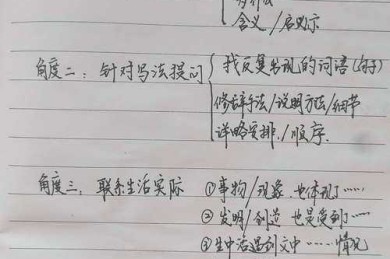 含义/启示
找反复出现的词语(句子)
角度二:针对写法提问
修辞手法/说明方法/细节
详略安排/顺序
角度三:联系生活实际 ①事物/现象 也体现了……
②发明/创造 也是受到……
③生中活遇到文中……情况